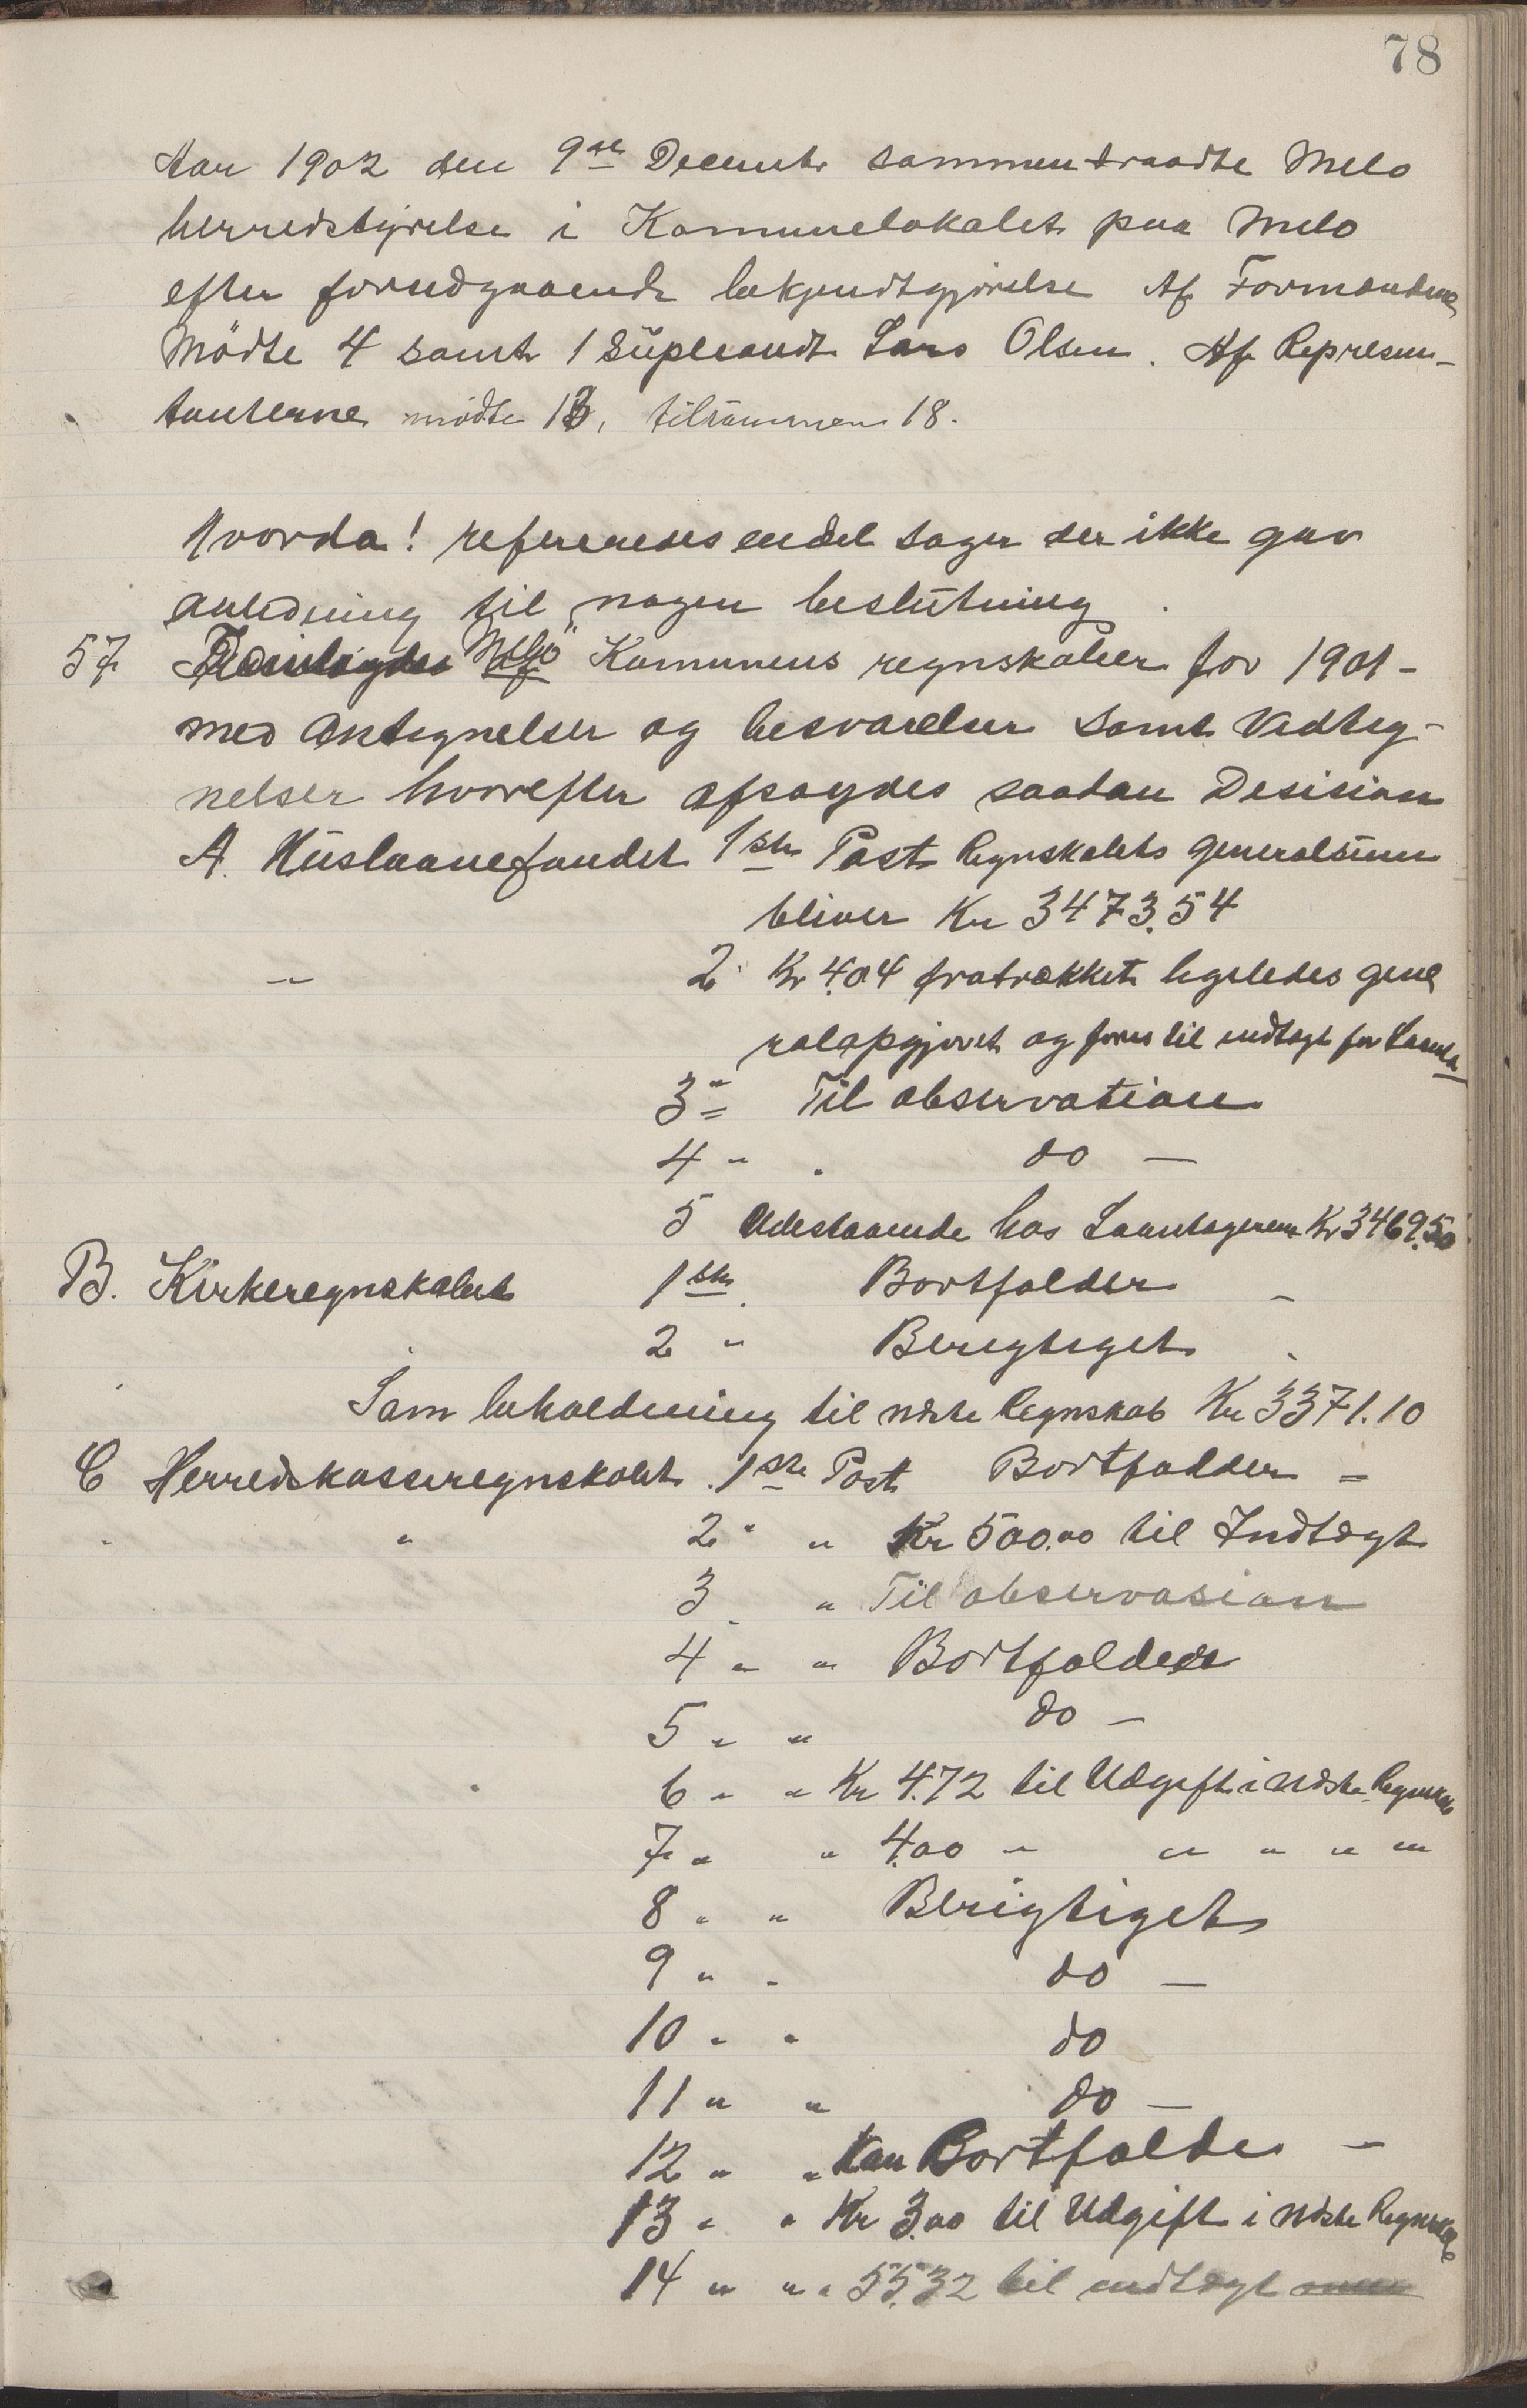 78
Aar 1902 den 9de Decembr sammentraadte Melø
herredstyrelse i Kommunelokalet paa Melø
efter forudgaaende bekjendtgjørelse Af Formændene
Mödte 4 samt 1 Supleandt Lars Olsen. Af Represen-
tanterne mödte 13, tilsammen 18.
Hvorda! refereredes endel sager der ikke gav
anledning til nogen beslutning.
57 Fremlagdes Melö Kommunes regnskaber for 1901-
med Antegnelser og besvarelser samt Vedteg-
nelser hvorefter afsagdes saadan Desision
A. Huslaanefondet 1ste Post Regnskabets generalsum
bliver Kr 3473.54
" 2 Kr 4.04 fratrækket ligeledes gene
ralopgjøret og føres til indtægt for
3 " Til observation
4 " " do -
5 Udestaaende hos Laantagerene Kr 3469.50
B. Kirkeregnskabet 1ste Bortfalder -
2 " Beregtiget
Som beholdning til næste Regnskab Kr 3371.10
C Herredskasseregnskabet 1ste Post Bortfalder =
" " 2 " " Kr 500.00 til Indtægt
3 " Til observasion
4 " " Bortfalder
5 " " do -
6 " " Kr 4.72 til Udgift i næste Regnskab
7 " " 4.00 " " " " "
8 " " Berigtiget
9 " " do -
10 " " do
11 " " do -
12 " " kan Bortfalde -
13 " " Kr 3.00 til Udgift i næste Regnskab
14 " " " 55.32 til indtægt